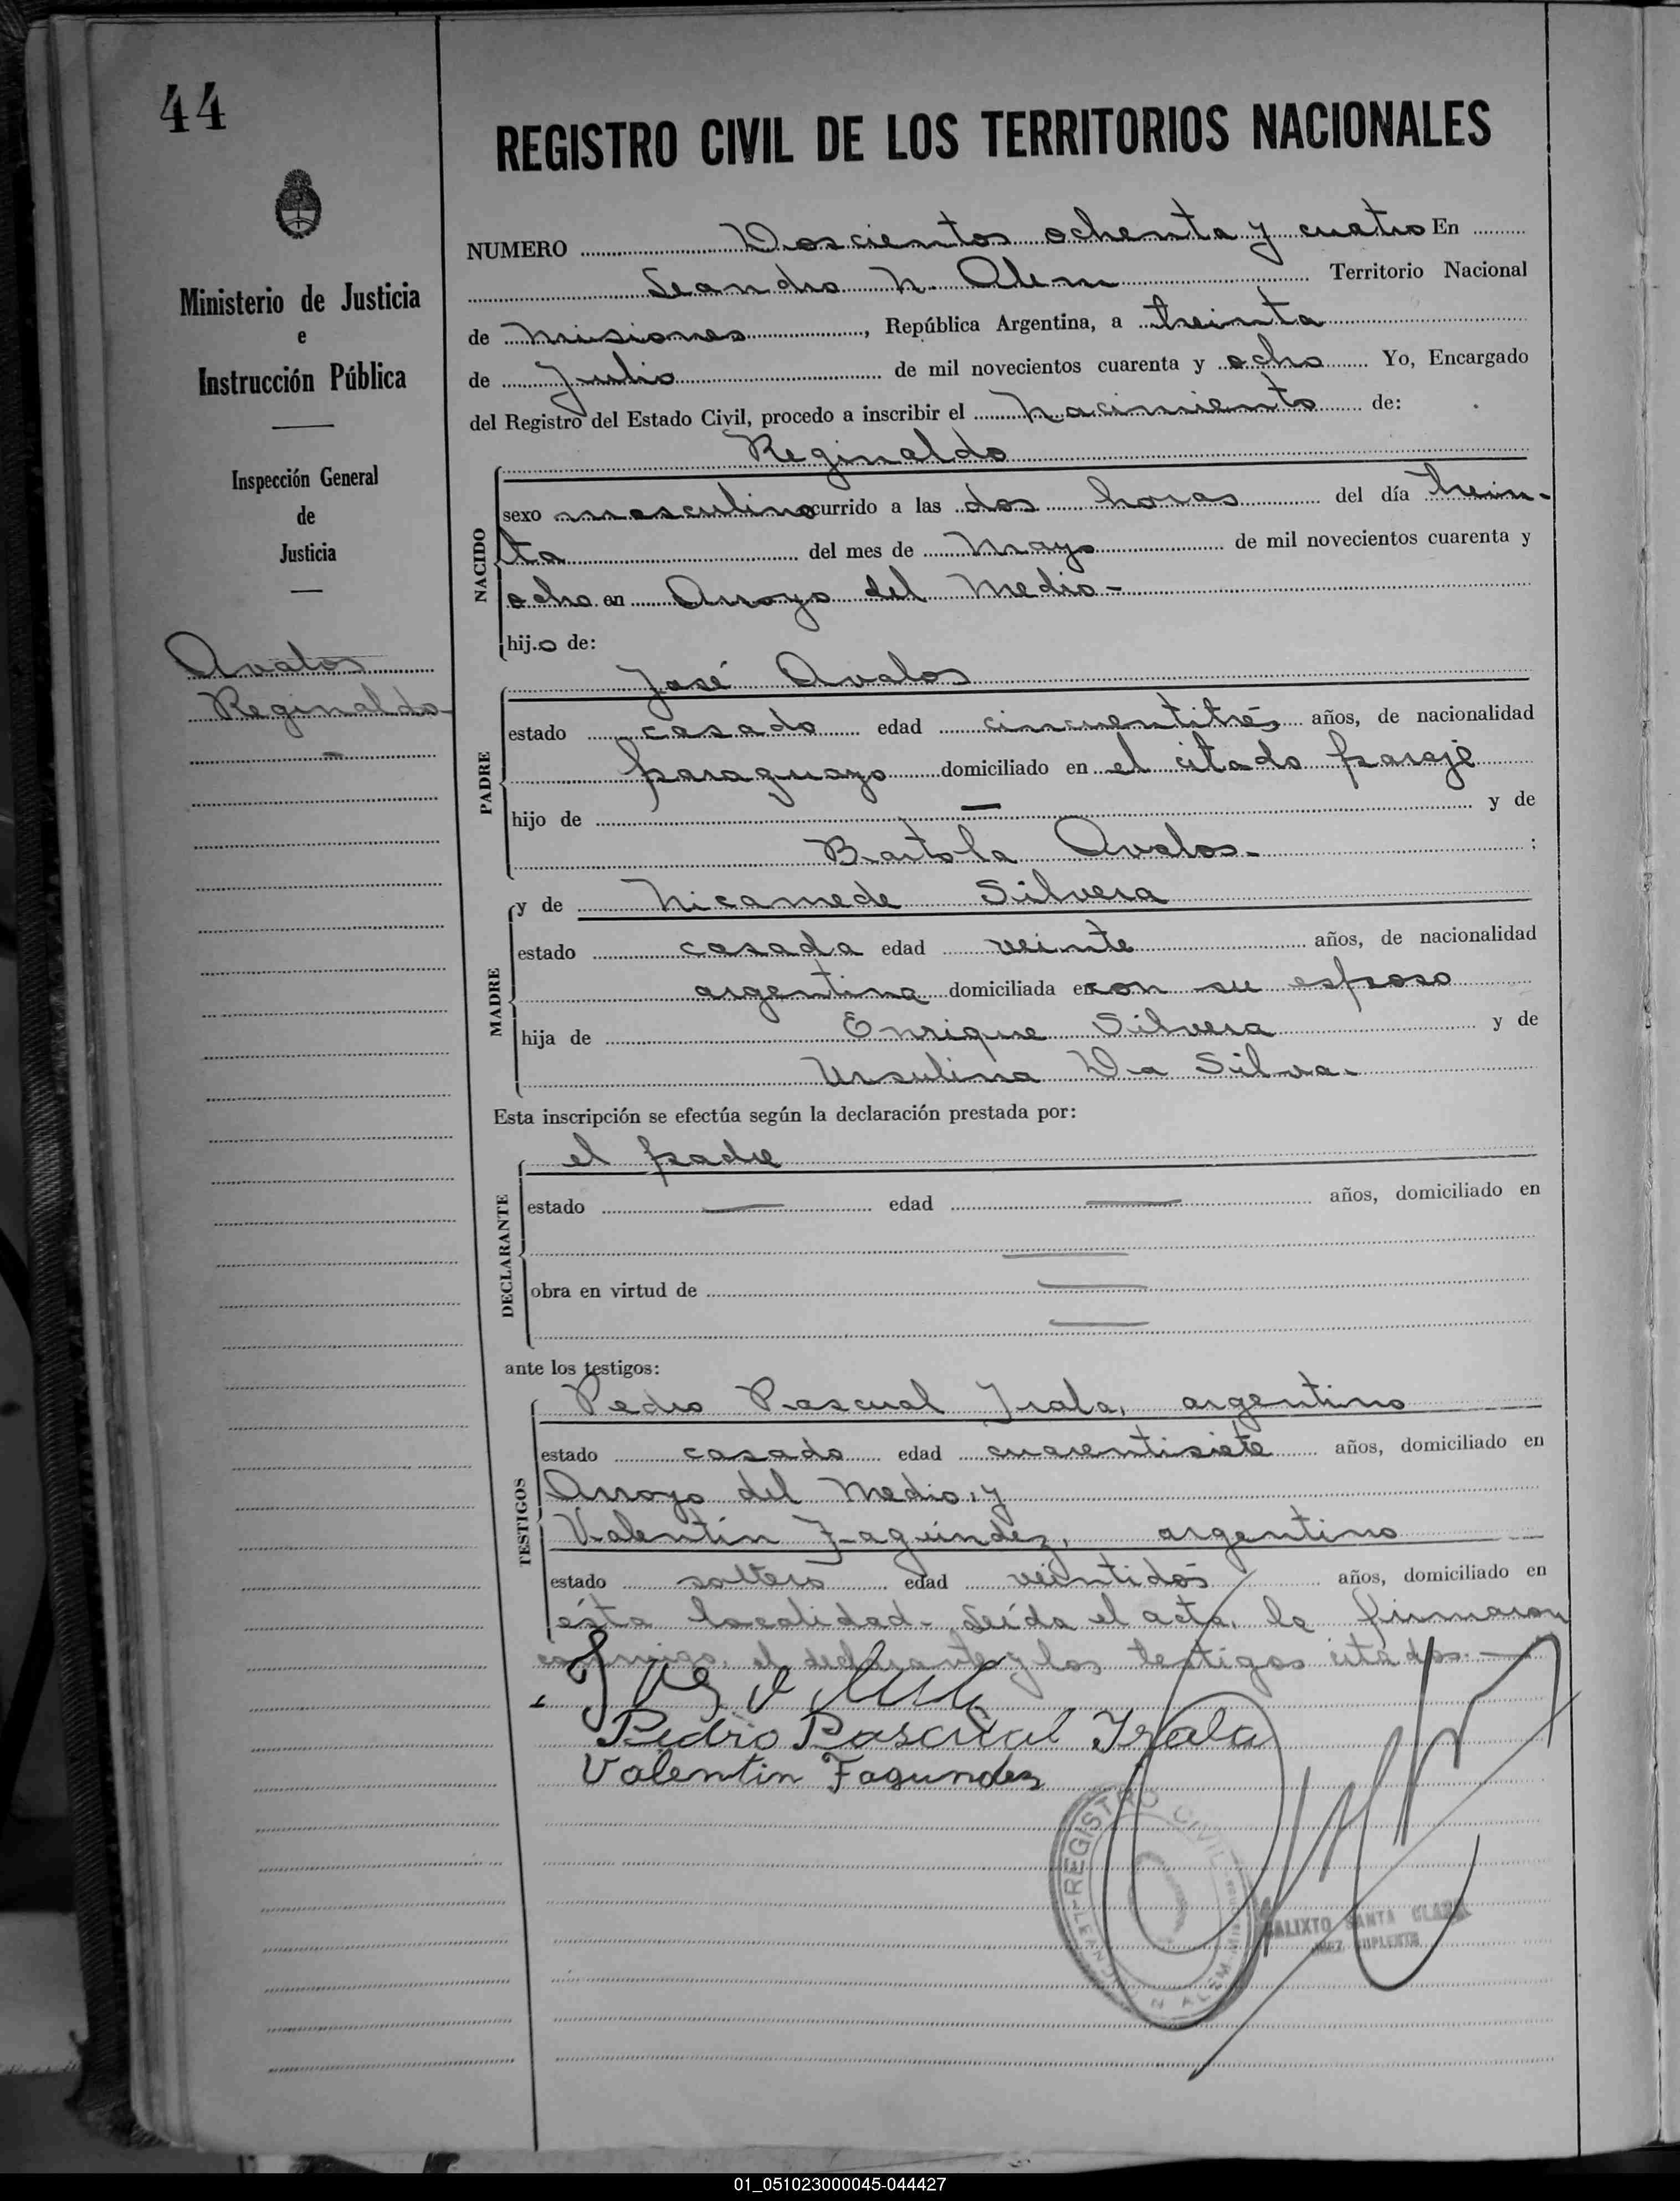 44
REGISTRO CIVIL DE LOS TERRITORIOS NACIONALES
Ministerio de Justicia
e
Instrucción Pública
Inspección General
de
Justicia
Avalos
Reginaldo
NUMERO Doscientos ochenta y cuatro En
Leandro N. Alem Territorio Nacional
de Misiones, República Argentina, a treinta
de Julio de mil novecientos cuarenta y ocho Yo, Encargado
del Registro del Estado Civil, procedo a inscribir el Nacimiento de:
Reginaldo
NACIDO
sexo masculino ocurrido a las dos horas del día trein-
ta del mes de Mayo de mil novecientos cuarenta y
ocho en Arroyo del Medio-
hijo de:
José Avalos
PADRE
estado casado edad cincuentitrés años, de nacionalidad
paraguayo domiciliado en el citado paraje
hijo de — y de
Bartola Avalos- :
MADRE
y de Nicamede Silvera
estado casada edad veinte años, de nacionalidad
argentina domiciliada en con su esposo
hija de Enrique Silvera y de
Ursulina Da Silva.
Esta inscripción se efectúa según la declaración prestada por:
DECLARANTE
el padre
estado — edad — años, domiciliado en
—
obra en virtud de —
—
ante los testigos:
TESTIGOS
Pedro Pascual Irala, argentino
estado casado edad cuarentisiete años, domiciliado en
Arroyo del Medio, y
Valentín Fagúndez, argentino
estado soltero edad veintidós años, domiciliado en
ésta localidad- Leída el acta, la firmaron
conmigo, el declarante y los testigos citados.—
Pedro Pascual Irala
Valentin Fagundez
REGISTRO CIVIL
LEANDRO N. ALEM
CALIXTO SANTA CLARA
JUEZ SUPLENTE
01_051023000045-044427